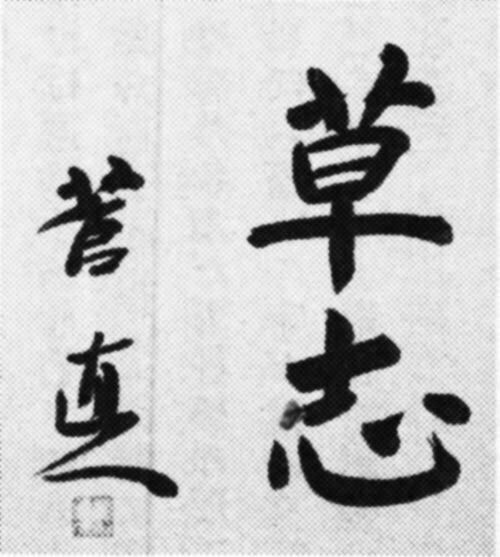 草志
菅直人